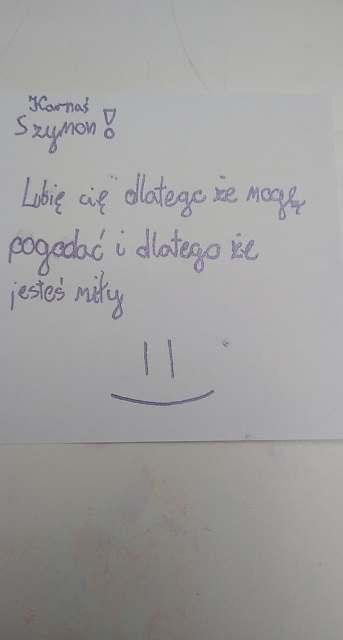 Karnaś
Szymon!
Lubię cię dlatego że mogę
pogadać i dlatego że
jesteś miły